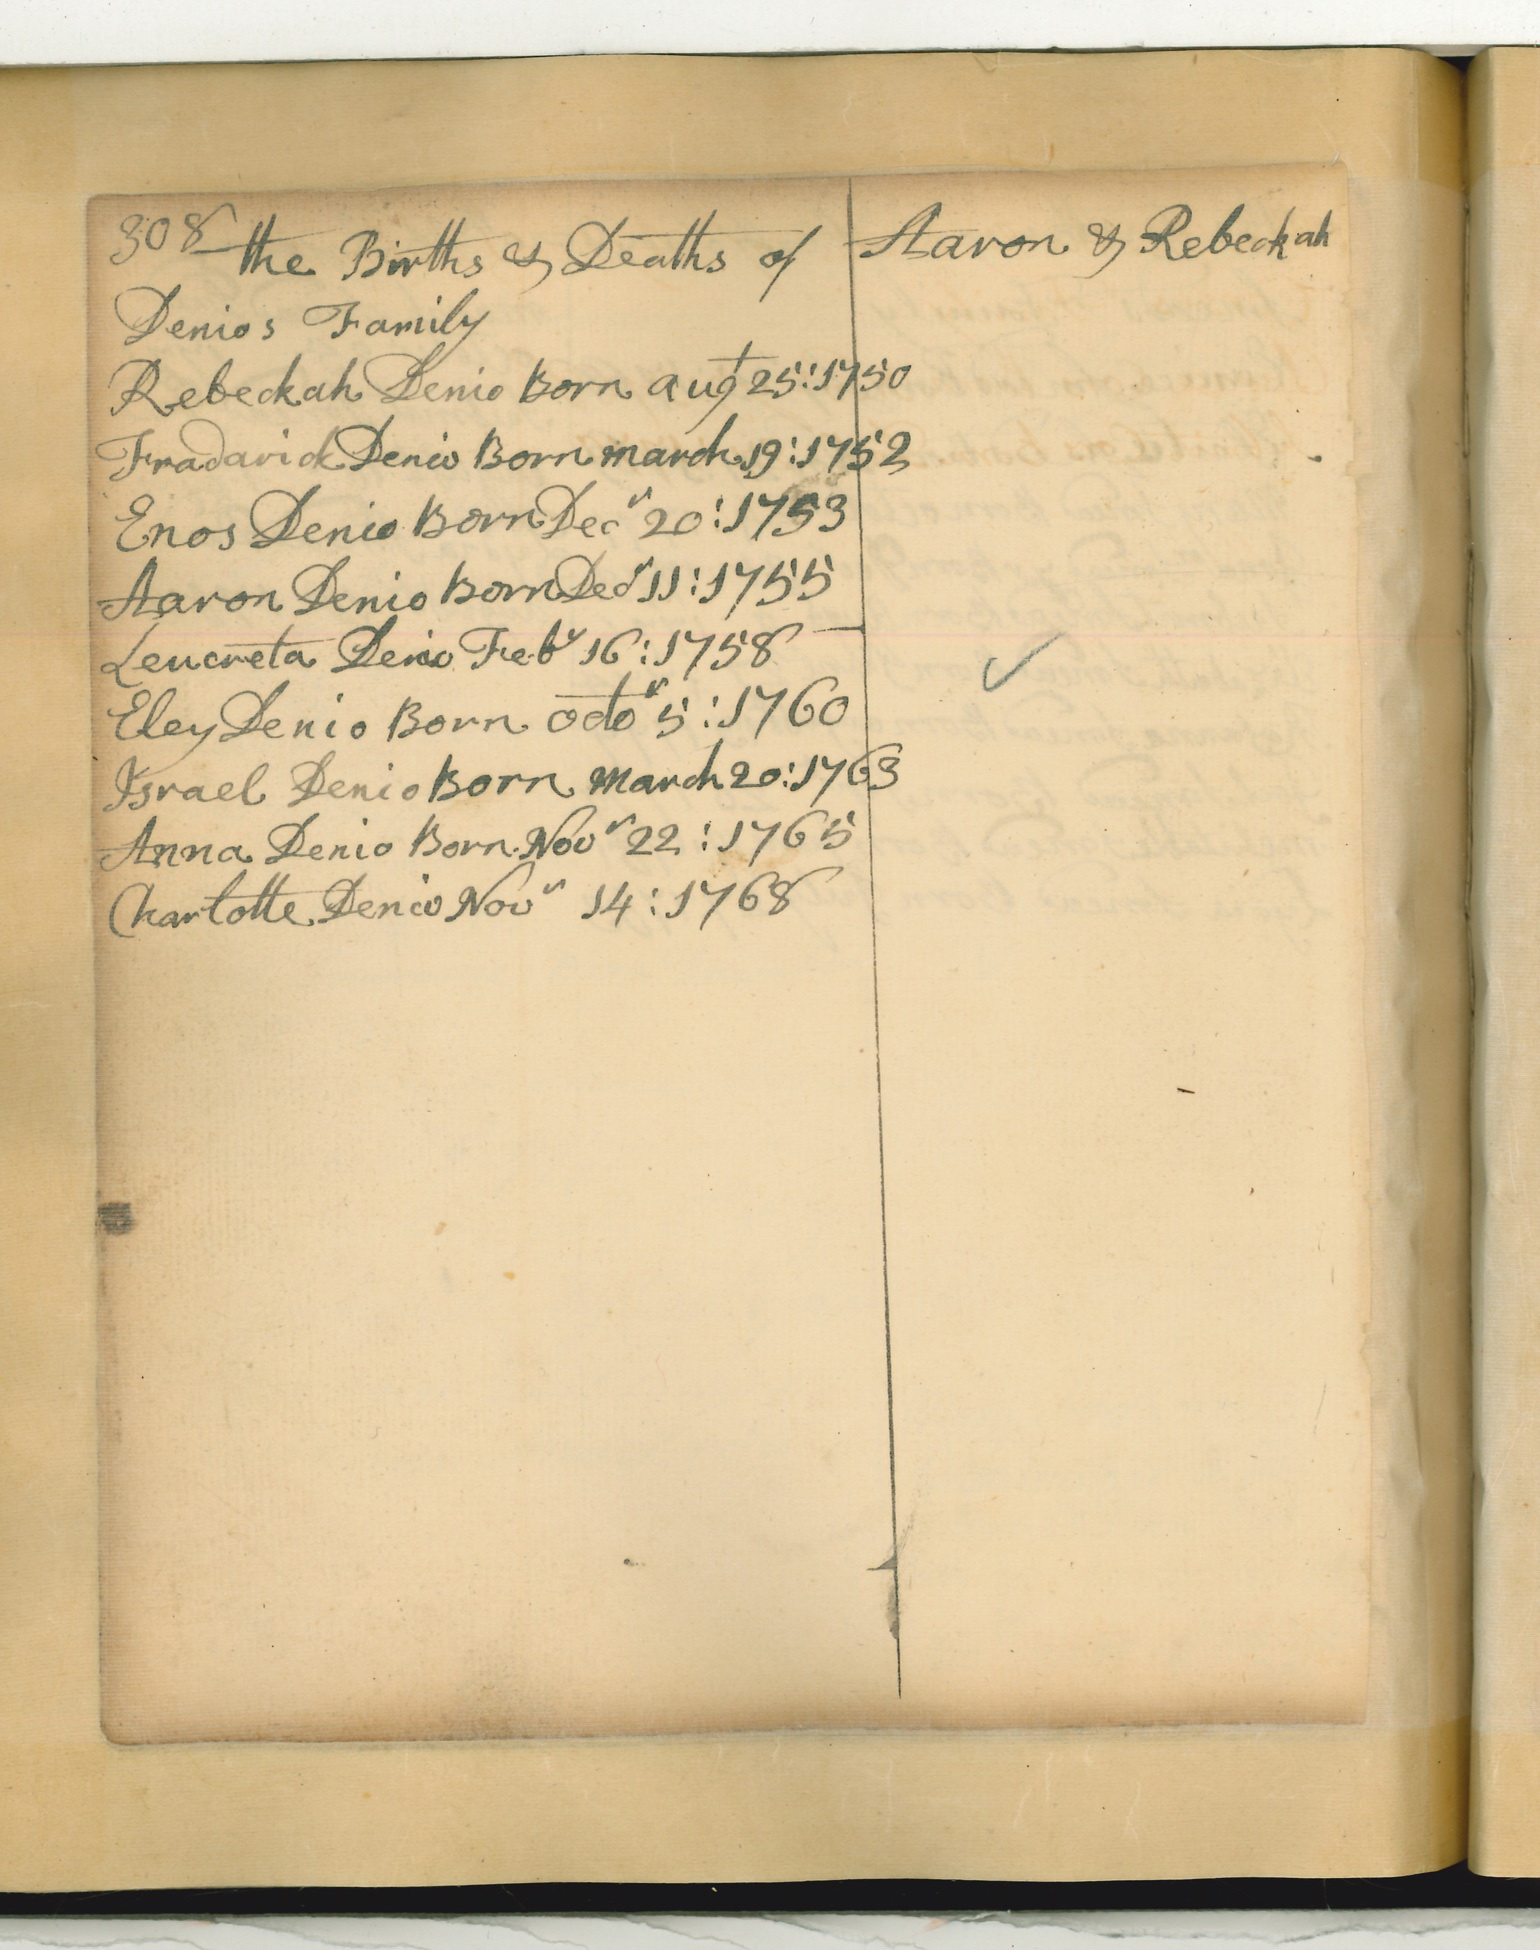 308 the Births & Deaths of Aaron & Rebeckah
Denios Family
Rebeckah Denio Born augt 25: 1750
Fradarick Denio Born march 19: 1752
Enos Denio Born Decr 20: 1753
Aaron Denio Born Decr 11: 1755
Leucreta Denio Feby 16: 1758
Eley Denio Born octor 5: 1760
Israel Denio Born March 20: 1763
Anna Denio Born Novr 22: 1765
Charlotte Denio Novr 14: 1768